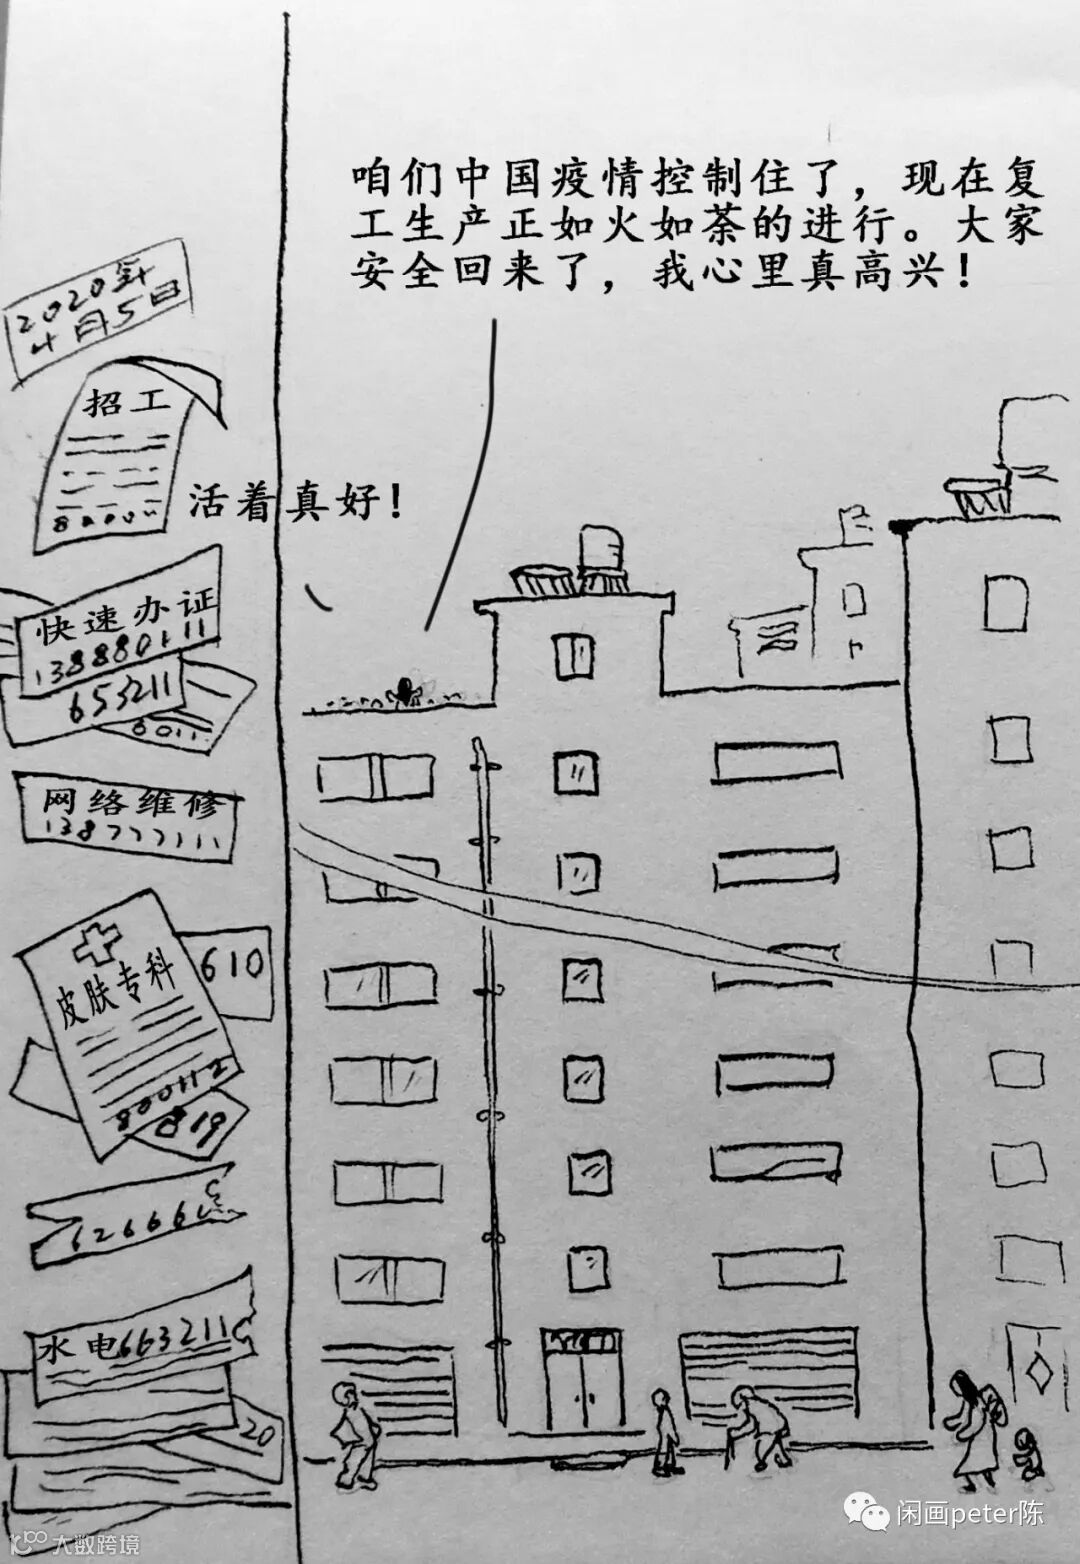 咱们中国疫情控制住了，现在复
工生产正如火如荼的进行。大家
安全回来了，我心里真高兴！
2020年
4月5日
招工
80000
活着真好！
快速办证
1388801111
653211
6011
网络维修
138777111
皮肤专科
800112
610
819
62666
水电663211
20
闲画peter陈
大数跨境